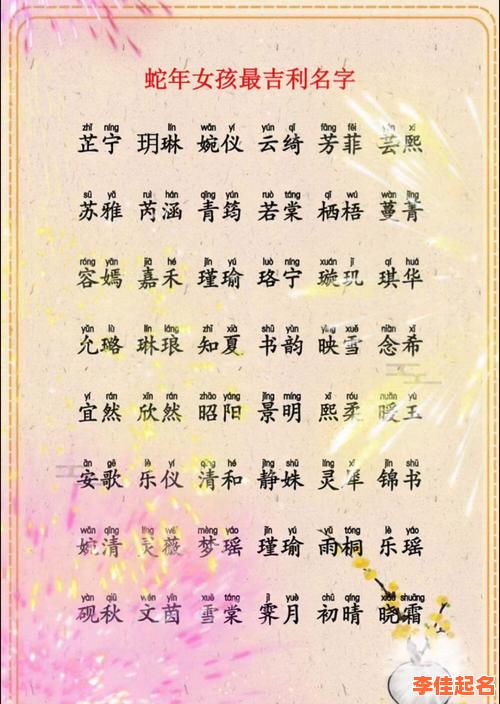 蛇年女孩最吉利名字
zhǐ níng lín wǎn yí yún qǐ fāng fēi yún xī
芷宁 玥琳 婉仪 云绮 芳菲 芸熙
sū yǎ ruì hán qīng yún ruò táng qī wú wàn jīng
苏雅 芮涵 青筠 若棠 栖梧 蔓菁
róng yān jiā hé jǐn yú luò níng xuán jī qí huá
容嫣 嘉禾 瑾瑜 珞宁 璇玑 琪华
yǔn lù lín láng zhī xià shū yùn yìng xuě niàn xī
允璐 琳琅 知夏 书韵 映雪 念希
yí rán xīn rán zhāo yáng jǐng míng xī róu nuǎn yù
宜然 欣然 昭阳 景明 熙柔 暖玉
ān gē lè yí qīng hé jìng shū líng xī jǐn shū
安歌 乐仪 清和 静姝 灵犀 锦书
wǎn qīng líng wēi mèng yáo jǐn yú yǔ tóng lè yáo
婉清 灵薇 梦瑶 瑾瑜 雨桐 乐瑶
yàn qiū wén yīn xuě táng jì yuè chū qíng xiǎo shuāng
砚秋 文茵 雪棠 霁月 初晴 晓霜
李佳起名